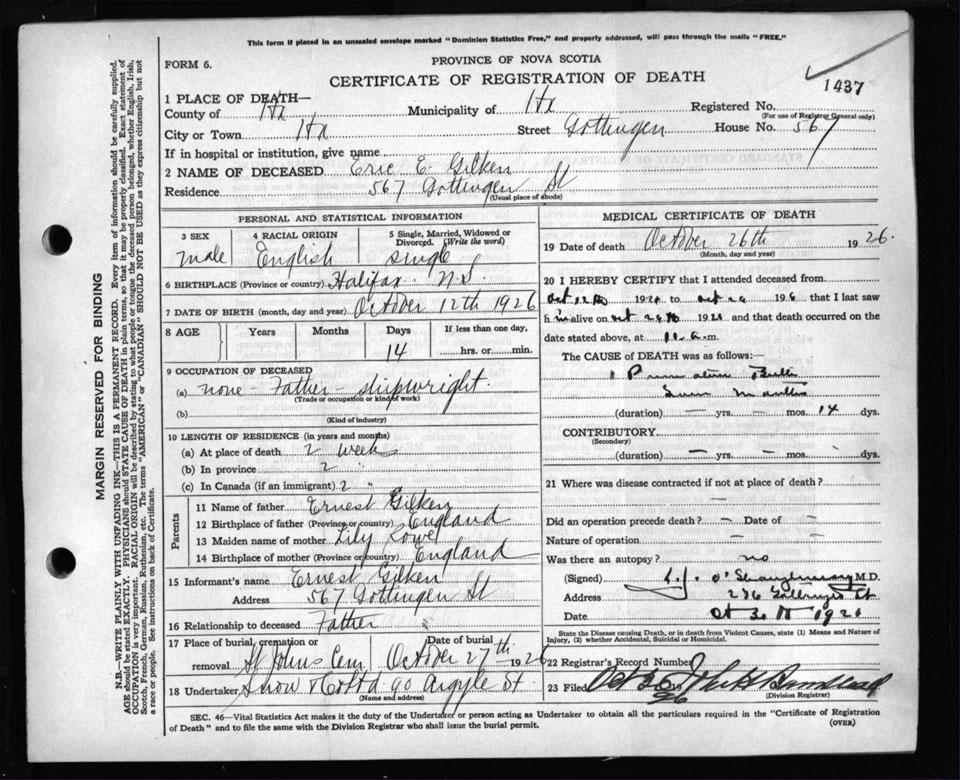 This form if placed in an unsealed envelope marked "Dominion Statistics Free," and properly addressed, will pass through the mails "FREE."
FORM 6.
PROVINCE OF NOVA SCOTIA
CERTIFICATE OF REGISTRATION OF DEATH
1437
1 PLACE OF DEATH—
County of Hx Municipality of Hx Registered No.
(For use of Registrar General only)
City or Town Hx Street Gottingen House No. 567
If in hospital or institution, give name
2 NAME OF DECEASED Eric E. Gilken
Residence 567 Gottingen St
(Usual place of abode)
PERSONAL AND STATISTICAL INFORMATION
3 SEX 4 RACIAL ORIGIN 5 Single, Married, Widowed or Divorced. (Write the word)
male English single
6 BIRTHPLACE (Province or country) Halifax N.S.
7 DATE OF BIRTH (month, day and year) October 12th 1926
8 AGE Years Months Days If less than one day,
14 hrs. or min.
9 OCCUPATION OF DECEASED
(a) none - Father - shipwright
(Trade or occupation or kind of work)
(b)
(Kind of industry)
10 LENGTH OF RESIDENCE (in years and months)
(a) At place of death 2 weeks
(b) In province 2 "
(c) In Canada (if an immigrant) 2 "
Parents
11 Name of father Ernest Gilken
12 Birthplace of father (Province or country) England
13 Maiden name of mother Lily Lowe
14 Birthplace of mother (Province or country) England
15 Informant's name Ernest Gilken
Address 567 Gottingen St
16 Relationship to deceased Father
17 Place of burial, cremation or removal St Johns Cem Date of burial October 27th 1926
18 Undertaker Snow & Co Ltd 90 Argyle St
(Name and address)
MEDICAL CERTIFICATE OF DEATH
19 Date of death October 26th 1926.
(Month, day and year)
20 I HEREBY CERTIFY that I attended deceased from
Oct 12th 1926 to Oct 26 1926 that I last saw
h im alive on Oct 1926 and that death occurred on the
date stated above, at 11 a.m.
The CAUSE of DEATH was as follows:
Premature Birth
(duration) — yrs. — mos. 14 dys.
CONTRIBUTORY
(Secondary)
(duration) — yrs. — mos. — dys.
21 Where was disease contracted if not at place of death?
—
Did an operation precede death? — Date of —
Nature of operation —
Was there an autopsy? no
(Signed) O'Shaughnessy M.D.
Address
Date Oct 1926
State the Disease causing Death, or in death from Violent Causes, state (1) Means and Nature of Injury, (2) whether Accidental, Suicidal or Homicidal.
22 Registrar's Record Number
23 Filed Oct 19 26
(Division Registrar)
SEC. 46—Vital Statistics Act makes it the duty of the Undertaker or person acting as Undertaker to obtain all the particulars required in the "Certificate of Registration
of Death" and to file the same with the Division Registrar who shall issue the burial permit.
(OVER)
MARGIN RESERVED FOR BINDING
N.B.—WRITE PLAINLY WITH UNFADING INK—THIS IS A PERMANENT RECORD. Every item of information should be carefully supplied.
AGE should be stated EXACTLY. PHYSICIANS should STATE CAUSE OF DEATH in plain terms, so that it may be properly classified. Exact statement of
OCCUPATION is very important. RACIAL ORIGIN will be described by stating to what people or tongue the deceased person belonged, whether English, Irish,
Scotch, French, German, Russian, Ruthenian, etc. The terms "AMERICAN" or "CANADIAN" SHOULD NOT BE USED as they express citizenship but not
a race or people. See instructions on back of Certificate.